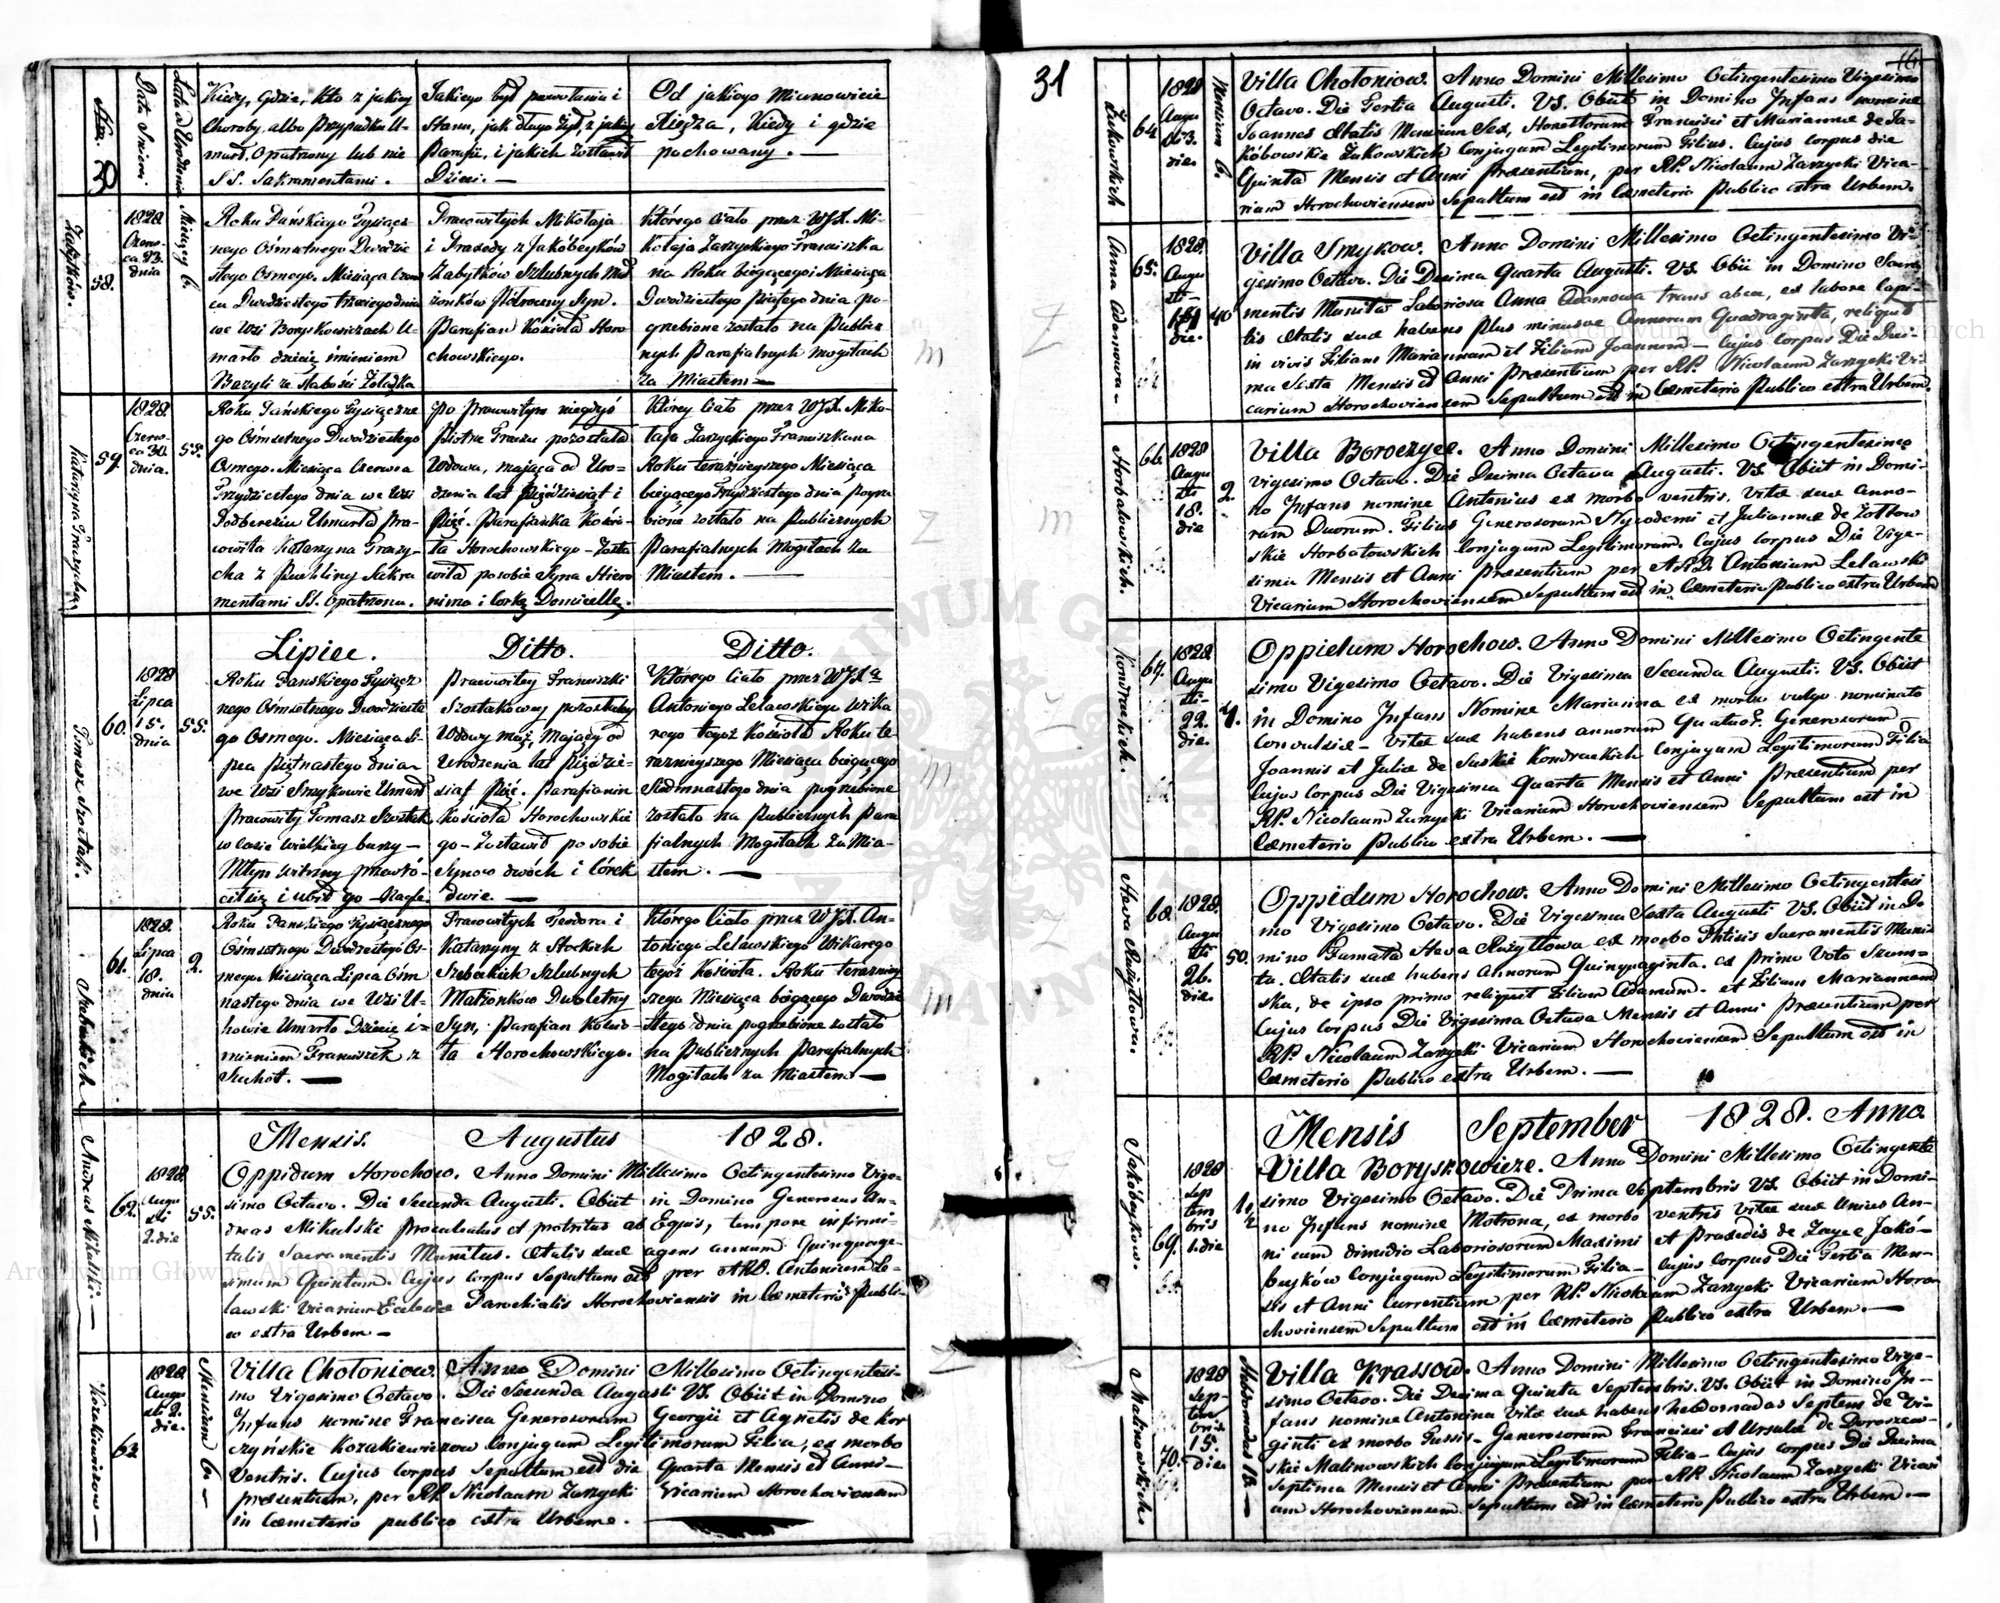 Nro. 30
Data Śmierci.
Lata od Urodzenia
Kiedy, Gdzie, kto z jakiey
Choroby, albo Przypadku U-
marł, Opatrzony lub nie
SS. Sakramentami.
Jakiego był powołania i
Stanu, jak długo żył, z jakiey
Parafii, i jakich zostawił
Dzieci. —
Od jakiego Mianowicie
Xiędza, Kiedy i gdzie
pochowany. —
Zabytków.
58.
1828.
Czerw-
ca 23.
dnia
Miesięcy 6.
Roku Pańskiego Tysiącz
nego Osmsetnego Dwudzie
stego Osmego. Miesiąca Czerw
ca Dwudziestego trzeciego dnia
we Wsi Boryskowiczach U-
marło dziecię imieniem
Bazyli ze słabości Żołądka
Pracowitych Mikołaja
i Praxedy z Jakóbczyków
Zabytków Szlubnych Mał
żonków Półroczny Syn.
Parafian Kościoła Horo
chowskiego.
Którego Ciało przez WJX. Mi-
kołaja Zarzyckiego Franciszka
na Roku biegącego i Miesiąca
Dwudziestego Piątego dnia po-
grzebione zostało na Publicz
nych Parafialnych Mogiłach
za Miastem —
59.
1828.
Czerw-
ca 30.
dnia.
55.
Roku Pańskiego Tysiączne
go Ośmsetnego Dwudziestego
Osmego. Miesiąca Czerwca
Trzydziestego dnia we Wsi
Podbereziu Umarła Pra-
cowita Katarzyna Praszy-
cha z Puchliny Sakra
mentami SS. Opatrzona.
po Pracowitym niegdyś
Piotrze Praszu pozostała
Wdowa, mająca od Uro-
dzenia lat Pięćdziesiąt i
Pięć. Parafianka Kościo-
ła Horochowskiego — Zosta
wiła po sobie Syna Hiero
nima i Corkę Domicellę.
Którey Ciało przez WJX. Miko-
łaja Zarzyckiego Franciszkana
Roku teraźnieyszego Miesiąca
biegącego Trzydziestego dnia pogrze
bione zostało na Publicznych
Parafialnych Mogiłach za
Miastem. —
Lipiec.
Ditto.
Ditto.
Tomasz Szostak.
60.
1828
Lipca
15.
dnia
55.
Roku Pańskiego Tysiącz
nego Ośmsetnego Dwudzieste
go Osmego. Miesiąca Li-
pca Piętnastego dnia
we Wsi Smykowie Umarł
Pracowity Tomasz Szostak
w czasie wielkiey burzy —
Młyn wietrzny przewró-
cił się i ubił go — Nagle
Pracowitey Franciszki
Szostakowey pozostałey
Wdowy mąż, Mający od
Urodzenia lat Pięćdzie-
siąt Pięć. Parafianin
Kościoła Horochowskie
go — Zostawił po sobie
Synow dwóch i Córek
dwie. —
Którego Ciało przez WJXa
Antoniego Lelawskiego Wika
rego tegoż Kościoła Roku te
raznieyszego Miesiąca biegącego
Siedmnastego dnia pogrzebione
zostało na Publicznych Para
fialnych Mogiłach za Mia-
stem. —
61.
1828.
Lipca
18.
dnia
2.
Roku Pańskiego Tysiącznego
Ośmsetnego Dwudziestego Os-
mego. Miesiąca Lipca Ośm
nastego dnia we Wsi U-
howie Umarło Dziecię i-
mieniem Franciszek z
Suchot. —
Pracowitych Teodora i
Katarzyny z Stockich
Szlubnych
Małżonków Dwuletny
Syn. Parafian Kościo-
ła Horochowskiego.
Którego Ciało przez WJX. An-
toniego Lelawskiego Wikarego
tegoż Kościoła. Roku terazniey
szego Miesiąca biegącego Dwudzie
stego dnia pogrzebione zostało
na Publicznych Parafialnych
Mogiłach za Miastem —
Mensis. Augustus 1828.
Andreas Mikulski —
62.
1828.
Augu
sti
2. die
55.
Oppidum Horochow. Anno Domini Millesimo Octingentesimo Vige-
simo Octavo. Die Secunda Augusti. Obiit in Domino Generosus An-
dreas Mikulski Proculcatus et protritus ab Equis, tempore infirmi-
tatis Sacramentis Munitus. Ætatis suæ agens annum Quinquage-
simum Quintum. Cujus Corpus Sepultum est per ARD. Antonium Le-
lawski Vicarium Ecclesiæ Parochialis Horochoviensis in Cæmeterio Publi-
co extra Urbem —
Kozakiewiczow —
63.
1828.
Augu
sti 2.
die.
Mensium 6 —
Villa Chołoniow. Anno Domini Millesimo Octingentesi-
mo Vigesimo Octavo. Die Secunda Augusti VS. Obiit in Domino
Infans nomine Francisca Generosorum Georgii et Agnetis de Kor
czyńskie Kozakiewiczow Conjugum Legitimorum Filia, ex morbo
Ventris. Cujus Corpus Sepultum est die Quarta Mensis et Anni —
præsentium, per RP. Nicolaum Zarzycki Vicarium Horochoviensem
in Cæmeterio publico extra Urbem. —
31
Żukowskich
64.
1828
Augu
sti 3.
die.
Mensium 6.
Villa Chołoniow. Anno Domini Millesimo Octingentesimo Vigesimo
Octavo. Die Tertia Augusti. VS. Obiit in Domino Infans nomine
Joannes Ætatis Mensium Sex, Honestorum Francisci et Mariannæ de Ja-
kóbowskie Żukowskich Conjugum Legitimorum Filius. Cujus corpus die
Quinta Mensis et Anni Præsentium, per RP. Nicolaum Zarzycki Vica-
rium Horochoviensem Sepultum est in Cæmeterio Publico extra Urbem.
Anna Adamowa —
65.
1828.
Augu
sti
14
die.
40
Villa Smykow. Anno Domini Millesimo Octingentesimo Vi-
gesimo Octavo. Die Decima Quarta Augusti. VS. Obii in Domino Sacra
mentis Munita Laboriosa Anna Adamowa trans abea, ex labore Capi-
tis Ætatis suæ habens plus minusve Annorum Quadraginta, reliquit
in vivis Filiam Mariannam et Filium Joannem — Cujus Corpus Die Deci-
ma Sexta Mensis et Anni Præsentium per RP. Nicolaum Zarzycki Vi-
carium Horochoviensem Sepultum est in Cæmeterio Publico extra Urbem.
Horbatowskich.
66.
1828
Augu
sti
18.
die
2.
Villa Boroczyce. Anno Domini Millesimo Octingentesimo
Vigesimo Octavo. Die Decima Octava Augusti. VS. Obiit in Domi-
no Infans nomine Antonius ex morbo ventris, vitæ suæ Anno-
rum Duorum. Filius Generosorum Nycodemi et Juliannæ de Zottow
skie Horbatowskich Conjugum Legitimorum. Cujus Corpus Die Vige-
sima Mensis et Anni Præsentium per ARD. Antonium Lelawski
Vicarium Horochoviensem Sepultum est in Cæmeterio Publico extra Urbem
Kondrackich.
67.
1828.
Augu
sti
22.
die.
4.
Oppidum Horochow. Anno Domini Millesimo Octingente
simo Vigesimo Octavo. Die Vigesima Secunda Augusti. VS. Obiit
in Domino Infans Nomine Marianna ex morbo vulgo nominato
Convulsiæ — Vitæ suæ habens annorum Quatuor. Generosorum
Joannis et Juliæ de Suskie Kondrackich Conjugum Legitimorum Filia
Cujus Corpus Die Vigesima Quarta Mensis et Anni Præsentium per
RP. Nicolaum Zarzycki Vicarium Horochoviensem Sepultum est in
Cæmeterio Publico extra Urbem. —
68.
1828.
Augu
sti
26.
die.
50.
Oppidum Horochow. Anno Domini Millesimo Octingentesi
mo Vigesimo Octavo. Die Vigesima Sexta Augusti VS. Obiit in Do
mino Famata Heva Rużyttowa ex morbo Phtisis Sacramentis Muni
ta. Ætatis suæ habens Annorum Quinquaginta. ex primo Voto Szum-
ska, de ipso primo reliquit Filium Adamum. et Filiam Mariannam
Cujus Corpus Die Vigesima Octava Mensis et Anni Præsentium per
RP. Nicolaum Zarzycki Vicarium Horochoviensem Sepultum est in
Cæmeterio Publico extra Urbem. —
Mensis September 1828. Anno
Jakóbczyków.
69.
1828
Sep
tem
bris
1. die
1 1/2
Villa Boryskowicze. Anno Domini Millesimo Octingente
simo Vigesimo Octavo. Die Prima Septembris VS. Obiit in Domi-
no Infans nomine Motrona, ex morbo ventris vitæ suæ Unius An-
ni cum dimidio Laboriosorum Maximi et Praxedis de Zayce Jakó-
bczyków Conjugum Legitimorum Filia — Cujus Corpus Die Tertia Men-
sis et Anni Currentium per RP. Nicolaum Zarzycki Vicarium Horo
choviensem Sepultum est in Cæmeterio Publico extra Urbem. —
Malinowskich
70.
1828
Sep-
tem
bris
15.
die
Villa Krassow. Anno Domini Millesimo Octingentesimo Vige-
simo Octavo. Die Decima Quinta Septembris. VS. Obiit in Domino In-
fans nomine Antonina Vitæ suæ habens hebdomadas Septem de Vi-
ginti ex morbo Tussis — Generosorum Francisci et Ursulæ de Doroszew-
skie Malinowskich Conjugum Legitimorum Filia — Cujus Corpus Die Decima
Septima Mensis et Anni Præsentium per RP. Nicolaum Zarzycki Vicari
um Horochoviensem Sepultum est in Cæmeterio Publico extra Urbem. —
Archiwum Główne Akt Dawnych
Archiwum Główne Akt Dawnych